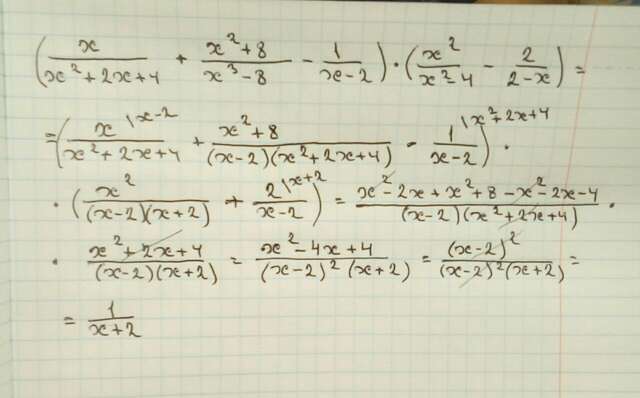 (x/(x²+2x+4) + (x²+8)/(x³-8) - 1/(x-2)) · (x²/(x²-4) - 2/(2-x)) =
= (x/(x²+2x+4) \x-2 + (x²+8)/((x-2)(x²+2x+4)) - 1/(x-2) \x²+2x+4) ·
· (x²/((x-2)(x+2)) + 2/(x-2) \x+2) = (x²-2x+x²+8-x²-2x-4)/((x-2)(x²+2x+4)) ·
· (x²+2x+4)/((x-2)(x+2)) = (x²-4x+4)/((x-2)²(x+2)) = (x-2)²/((x-2)²(x+2)) =
= 1/(x+2)